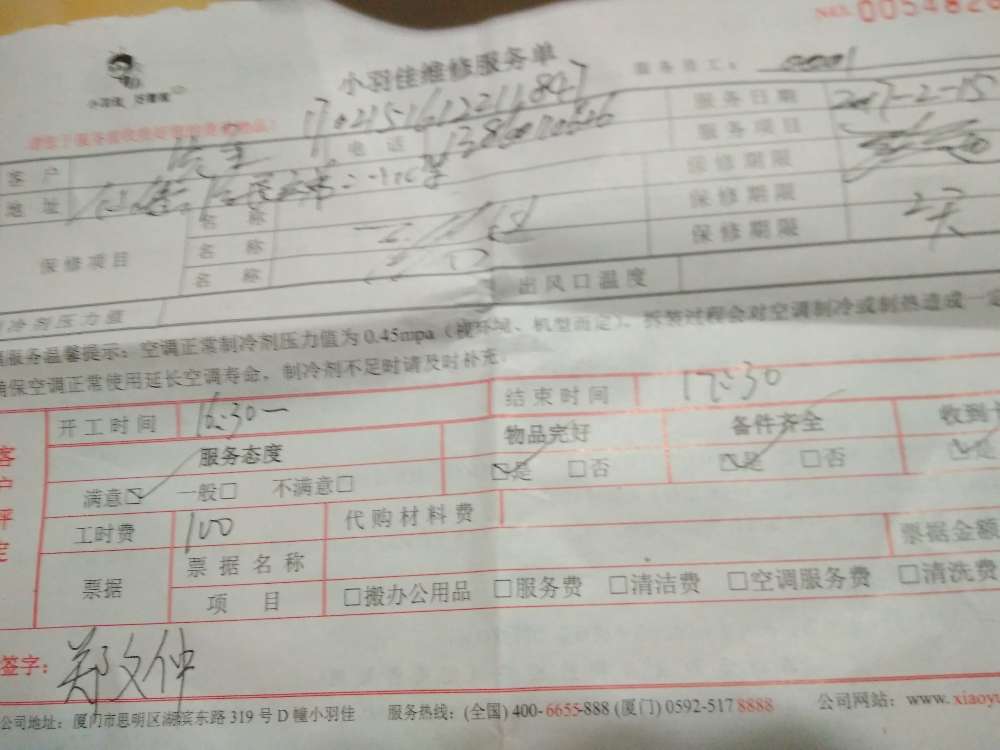 小羽佳维修服务单
小羽佳 好管家
服务员工: 0001
17021516122111847
客户 电话 13860110626 服务日期 2017-2-15
地址 服务项目
保修项目 名称 保修期限
名称 保修期限 2天
名称 保修期限
冷剂压力值 出风口温度
服务温馨提示:空调正常制冷剂压力值为 0.45mpa(视环境、机型而定)、拆装过程会对空调制冷或制热造成一定
确保空调正常使用延长空调寿命,制冷剂不足时请及时补充。
客户评定
开工时间 16:30 结束时间 17:30
服务态度 物品完好 备件齐全 收到
满意☑ 一般□ 不满意□ ☑是 □否 ☑是 □否
工时费 100 代购材料费
票据 票据名称 票据金额
项目 □搬办公用品 □服务费 □清洁费 □空调服务费 □清洗费
签字: 郑文仲
公司地址:厦门市思明区湖滨东路 319 号 D 幢小羽佳 服务热线:(全国) 400-6655-888 (厦门) 0592-517 8888 公司网站:www.xiaoy